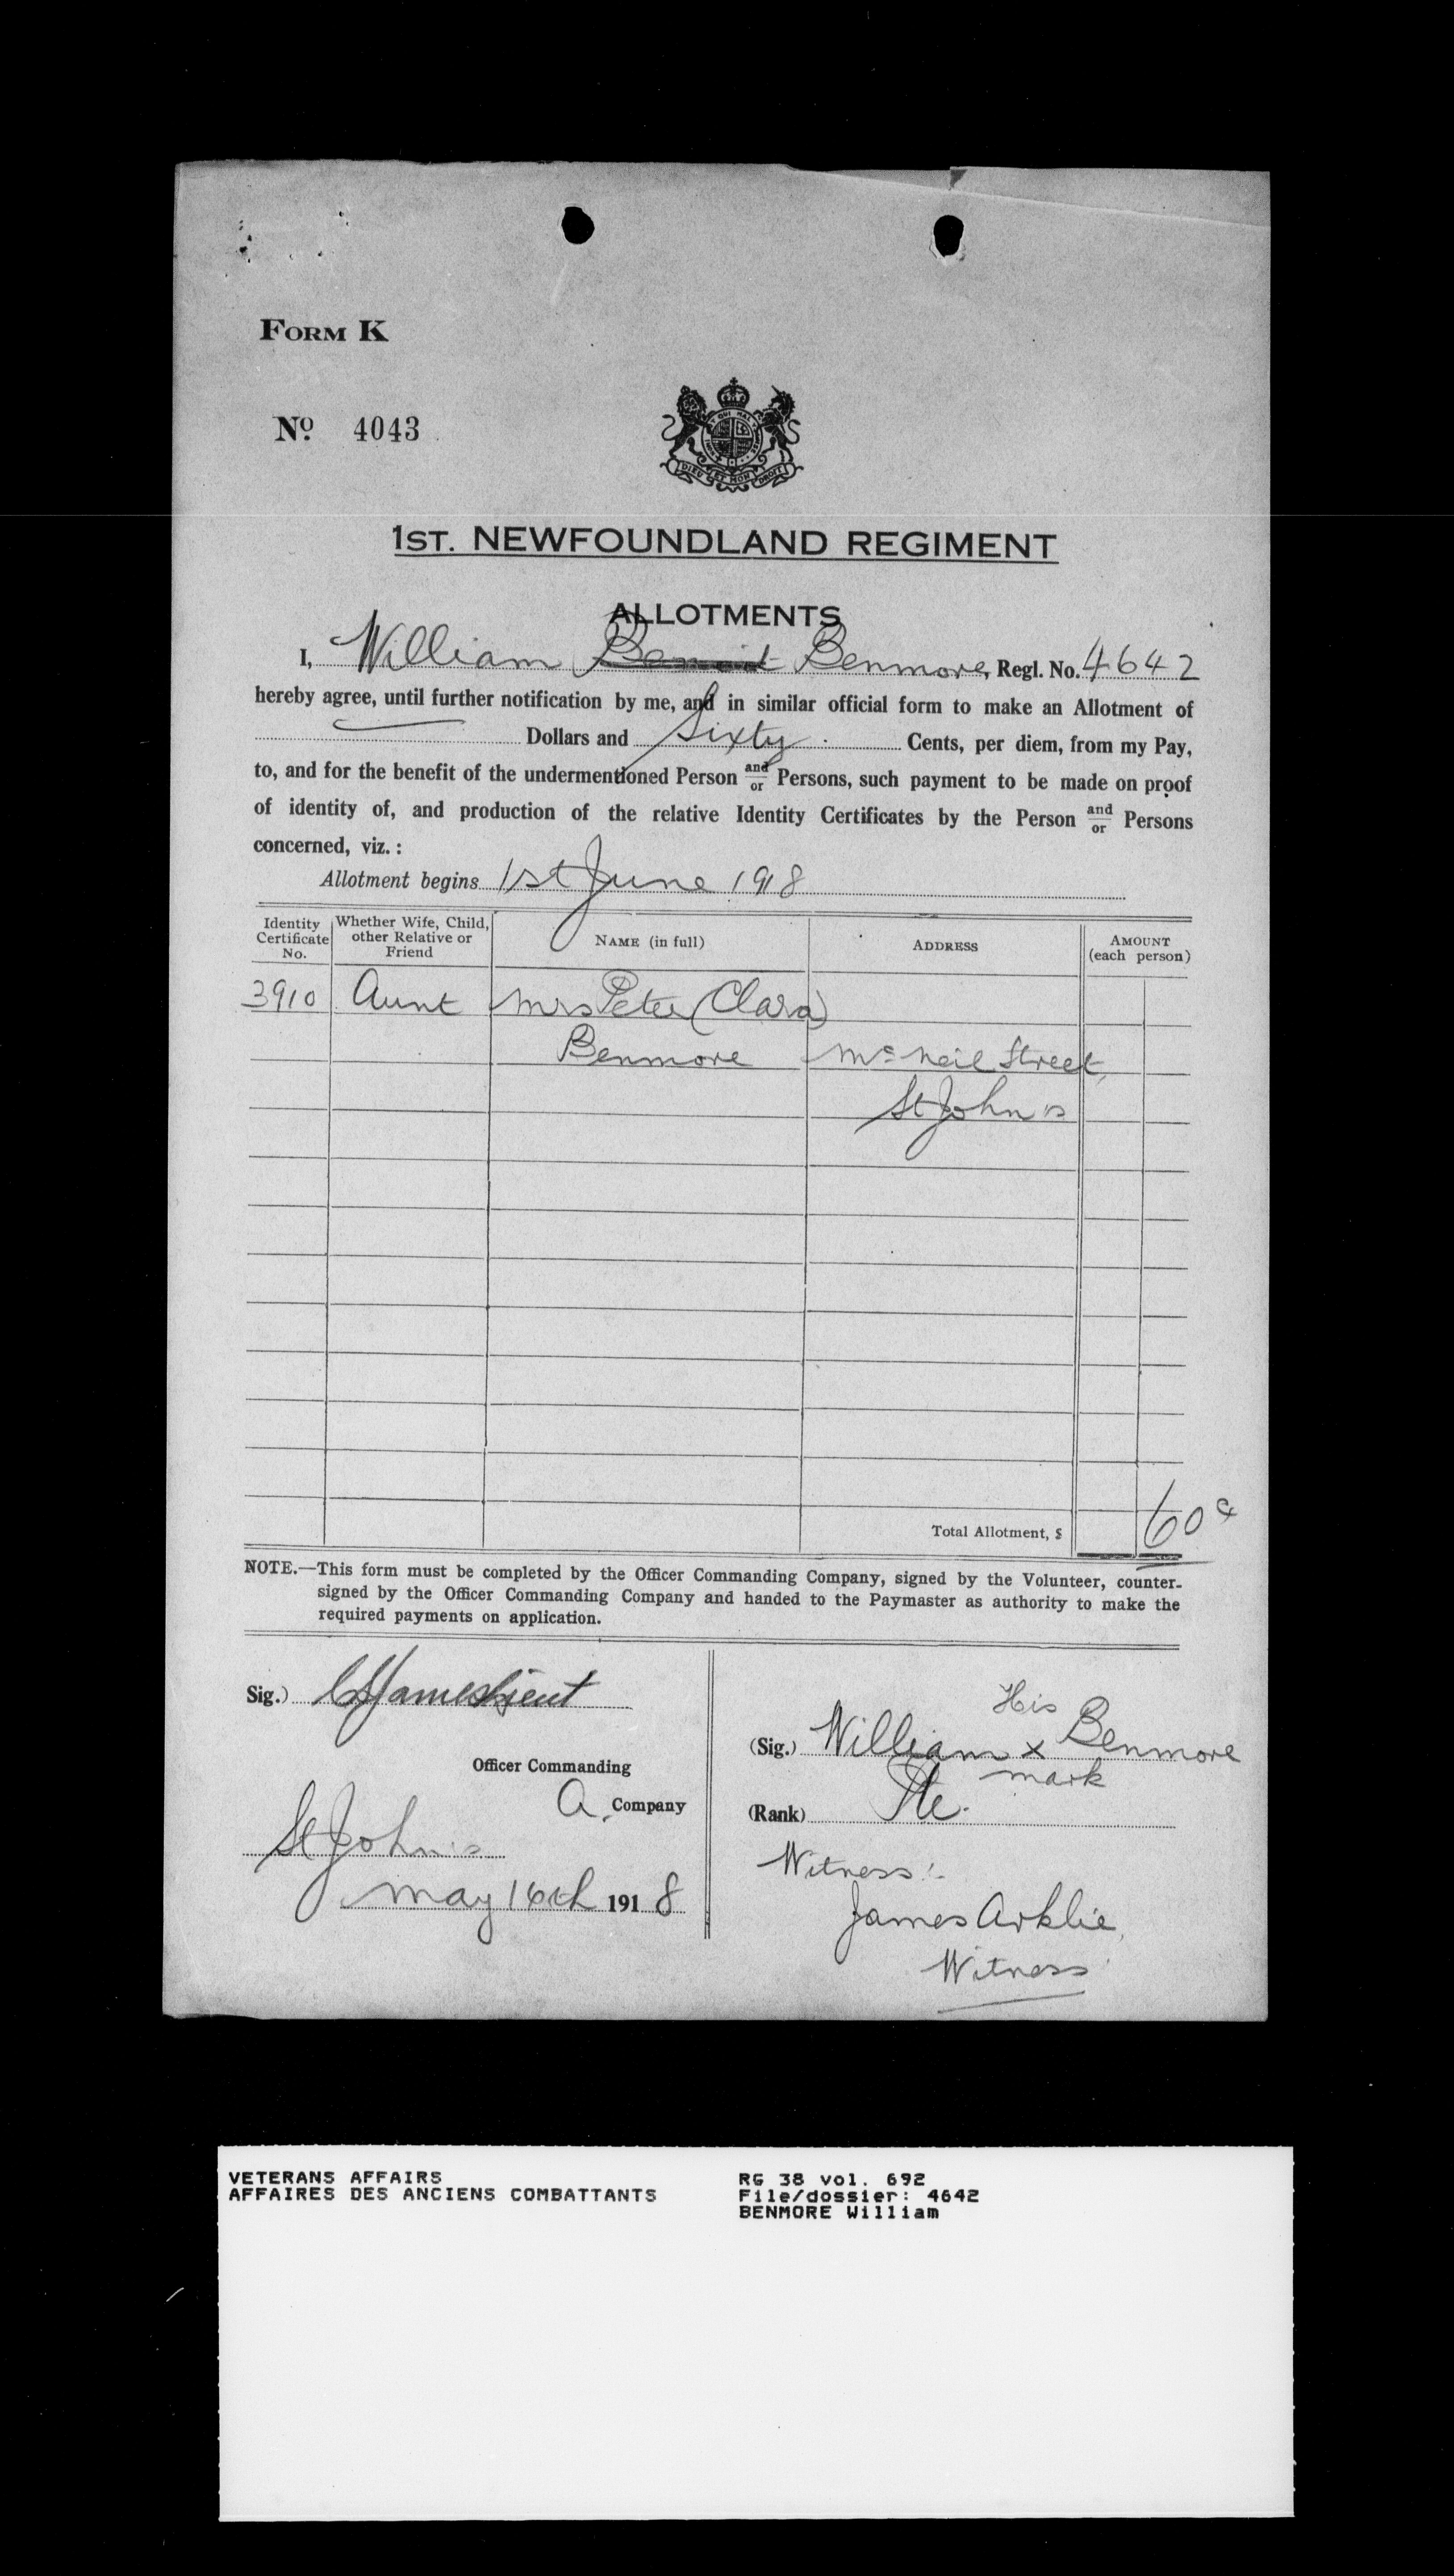 FORM K
No. 4043
QUI MAL
DIEU ET MON DROIT
1ST. NEWFOUNDLAND REGIMENT
ALLOTMENTS
I, William Benmore, Regl. No. 4642
hereby agree, until further notification by me, and in similar official form to make an Allotment of
Dollars and Sixty Cents, per diem, from my Pay,
to, and for the benefit of the undermentioned Person and/or Persons, such payment to be made on proof
of identity of, and production of the relative Identity Certificates by the Person and/or Persons
concerned, viz.:
Allotment begins 1st June 1918
Identity Certificate No. Whether Wife, Child, other Relative or Friend NAME (in full) ADDRESS AMOUNT (each person)
3910 Aunt Mrs Peter (Clara)
Benmore McNeil Street,
St John's
Total Allotment, $ 60c
NOTE.—This form must be completed by the Officer Commanding Company, signed by the Volunteer, counter-
signed by the Officer Commanding Company and handed to the Paymaster as authority to make the
required payments on application.
Sig.)
Officer Commanding
A Company
St John's
May 16th 1918
His
(Sig.) William x Benmore
mark
(Rank) Pte.
Witness:-
James Arklie,
Witness
VETERANS AFFAIRS
AFFAIRES DES ANCIENS COMBATTANTS
RG 38 vol. 692
File/dossier: 4642
BENMORE William